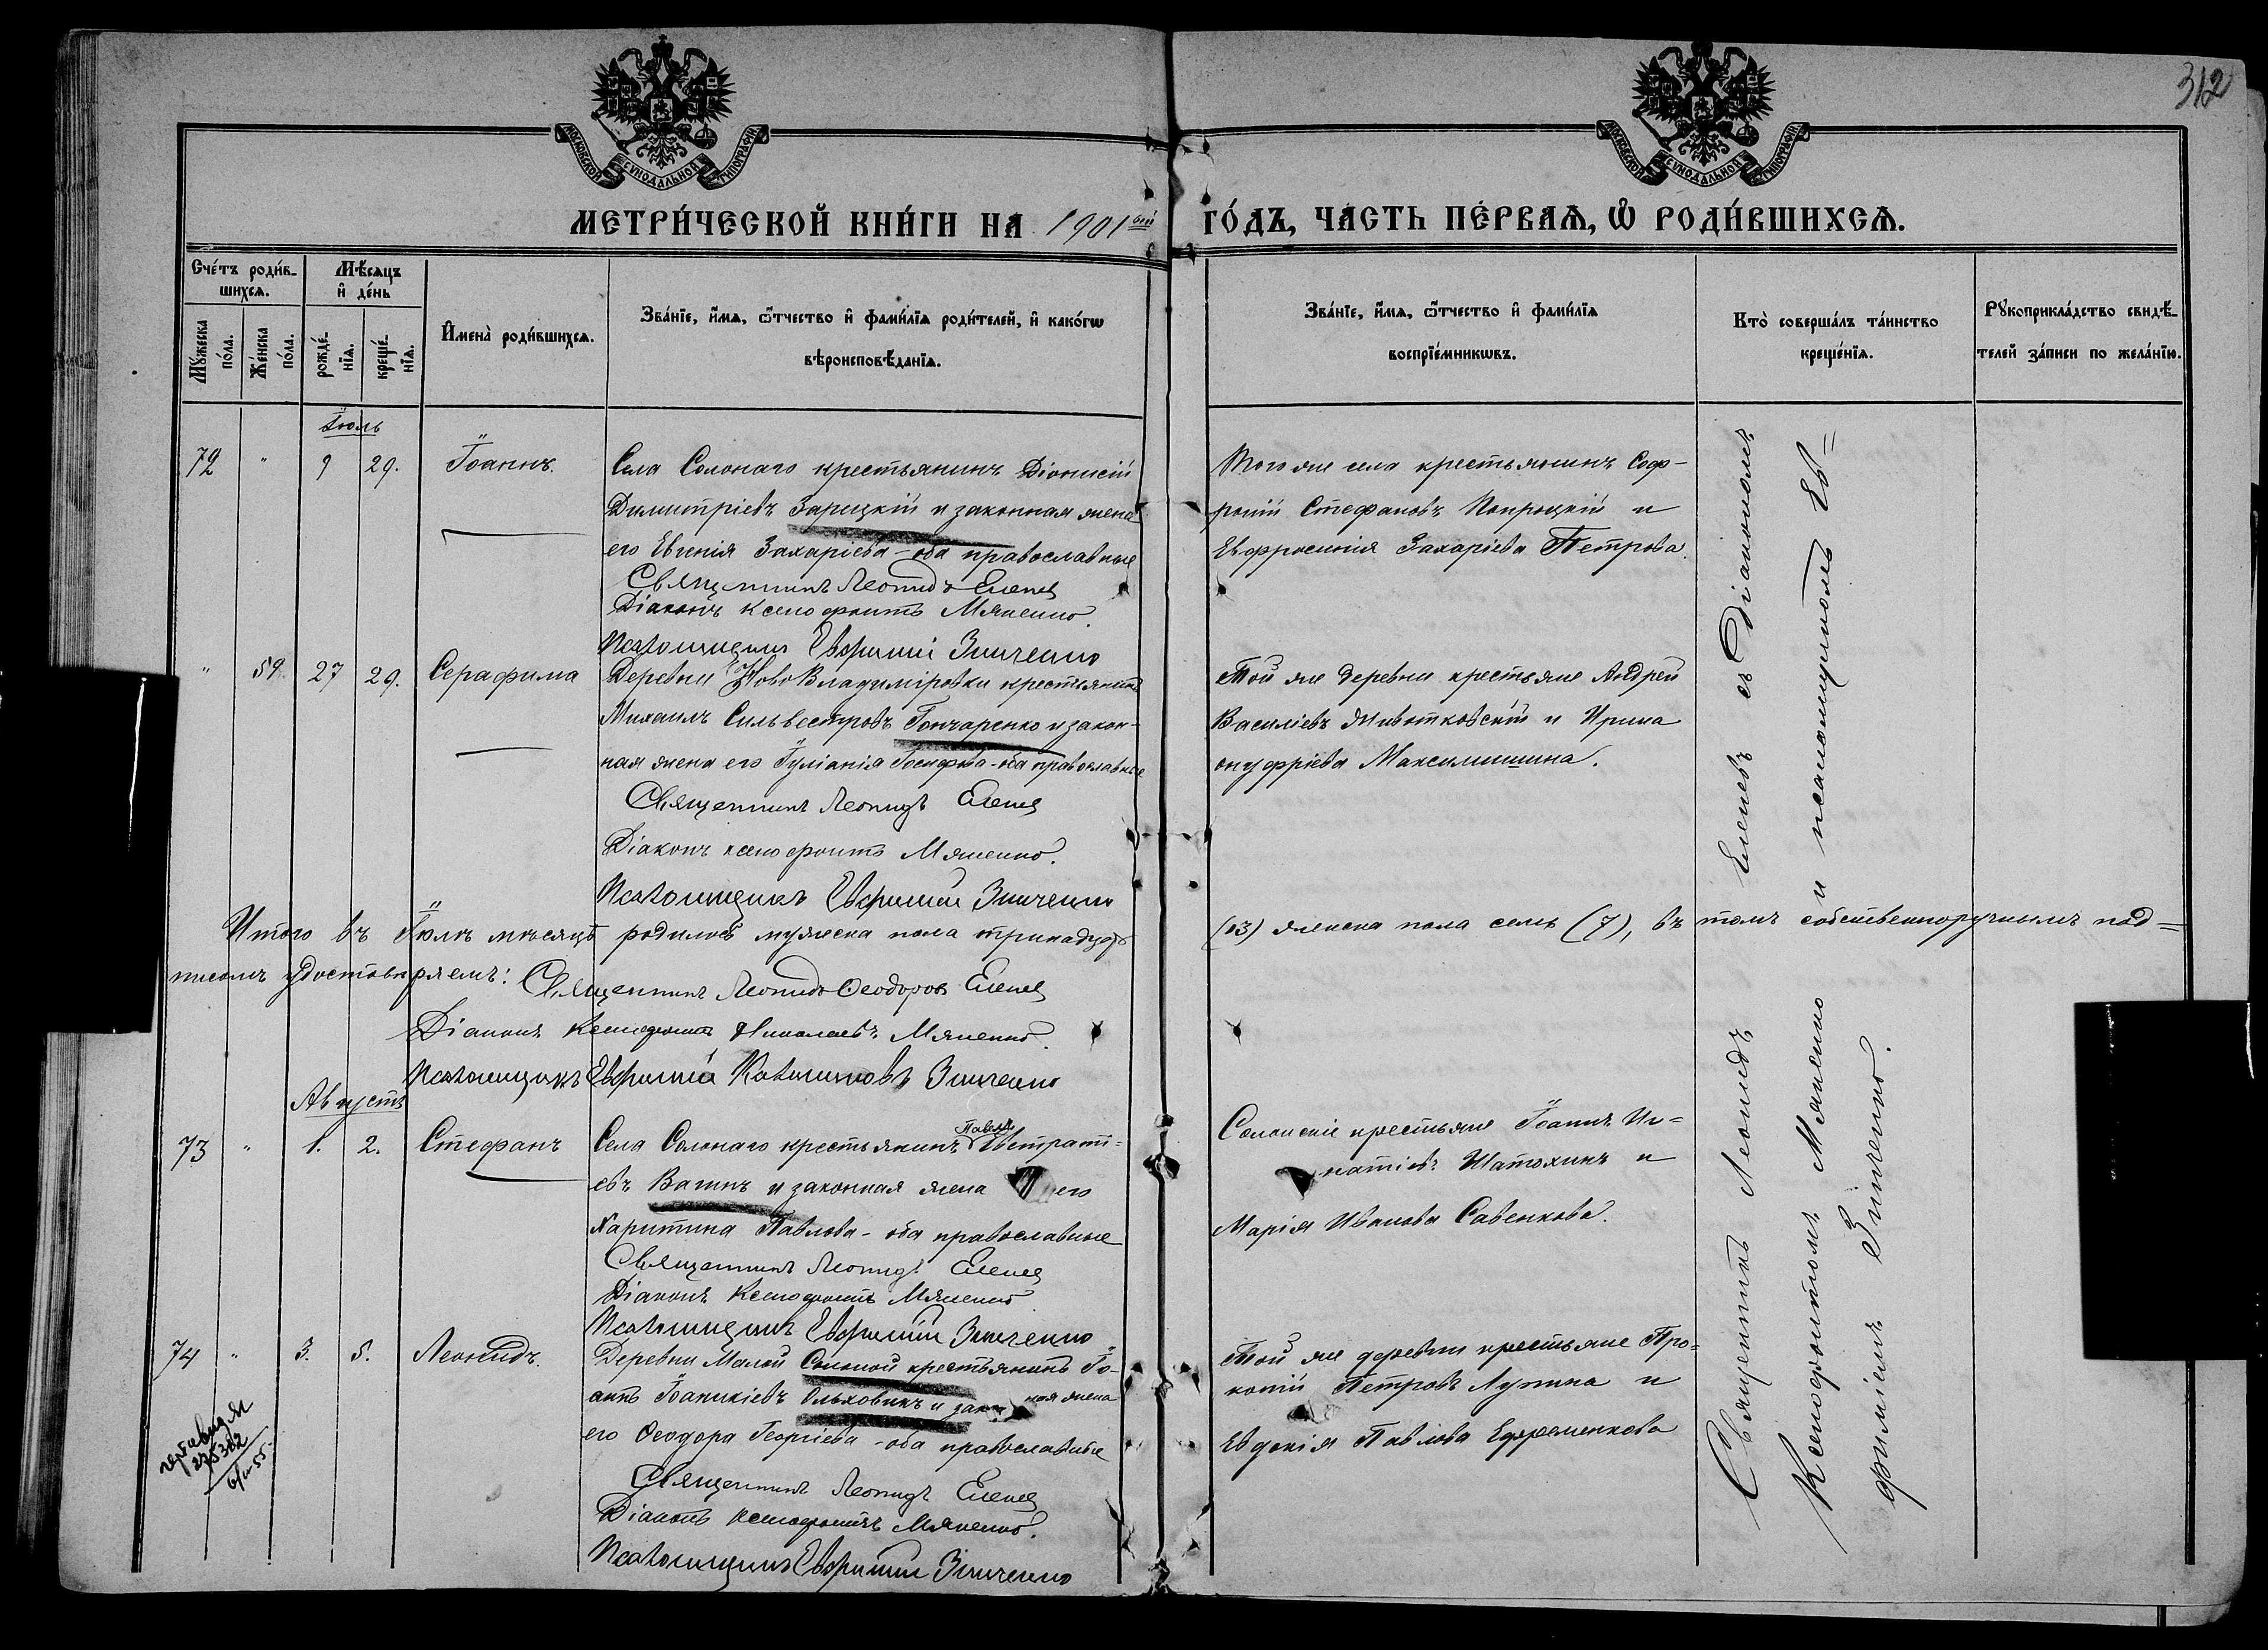 312
МОСКОВСКОЙ СѴНОДАЛЬНОЙ ТИПОГРАФІИ
МОСКОВСКОЙ СѴНОДАЛЬНОЙ ТИПОГРАФІИ
МЕТРИ́ЧЕСКОЙ КНИ́ГИ НА 1901 ГО́ДЪ, ЧА́СТЬ ПЕ́РВАѦ, Ѿ РОДИ́ВШИХСѦ.
Сче́тъ роди́в-
шихсѧ.
Мѣ́сяцъ
и҆ де́нь
Мꙋ́жеска
по́ла.
Же́нска
по́ла.
рожде́-
нїѧ.
креще́-
нїѧ.
И҆мена̀ роди́вшихсѧ.
Зва́нїе, и҆́мѧ, ѻ҆́тчество и҆ фами́лїѧ роди́телей, и҆ како́гѡ
вѣроисповѣ́данїѧ.
Зва́нїе, и҆́мѧ, ѻ҆́тчество и҆ фами́лїѧ
воспрїе́мникѡвъ.
Кто̀ соверша́лъ та́инство
креще́нїѧ.
Рꙋкоприкла́дство свидѣ́-
телей за́писи по жела́нїю.
Іюль
72 " 9 29. Іоаннъ.
Села Солонаго крестьянинъ Діонисій
Димитріевъ Зарицкій и законная жена
его Евгенія Захаріева - оба православные
Священникъ Леонидъ Еленевъ
Діаконъ Ксенофонтъ Мяченко.
Псаломщикъ Евфимій Зинченко
Того же села крестьянинъ Соф-
роній Стефановъ Попроцкій и
Евфросинія Захаріева Петрова.
" 59 27 29. Серафима
Деревни НовоВладиміровки крестьянинъ
Михаилъ Сильвестровъ Гончаренко и закон-
ная жена его Іуліанія Іосифова - оба православные
Священникъ Леонидъ Еленевъ
Діаконъ Ксенофонтъ Мяченко.
Псаломщикъ Евфимій Зинченко
Той же деревни крестьяне Андрей
Василіевъ Животковскій и Ирина
Онуфріева Максимишина.
Итого въ Іюлѣ мѣсяцѣ родилось мужеска пола тринадцать (13) женска пола семь (7), въ томъ собственноручнымъ под=
писомъ удостовѣряемъ: Священникъ Леонидъ Ѳеодоровъ Еленевъ
Діаконъ Ксенофонтъ Николаевъ Мяченко.
Псаломщикъ Евфимій Зинченко
Августъ
73 " 1. 2. Стефанъ
Павелъ
Села Солонаго крестьянинъ Евстраті-
евъ Вагинъ и законная жена его
Харитина Павлова - оба православные
Священникъ Леонидъ Еленевъ
Діаконъ Ксенофонтъ Мяченко
Псаломщикъ Евфимій Зинченко
Солонскіе крестьяне Іоаннъ Иг=
натіевъ Шатохинъ и
Марія Иванова Савенкова.
74 " 3. 5. Леонидъ.
Деревни Малой Солоной крестьянинъ Іо-
аннъ Іоанникіевъ Ольховикъ и законная жена
его Ѳеодора Георгіева - оба православные
Священникъ Леонидъ Еленевъ
Діаконъ Ксенофонтъ Мяченко.
Псаломщикъ Евфимій Зинченко
Той же деревни крестьяне Про-
копій Петровъ Лупина и
Евдокія Павлова Ефременкова
275302
Священникъ Леонидъ Еленевъ съ Діакономъ
Ксенофонтомъ Мяченко и псаломщикомъ Ев=
фиміемъ Зинченко.